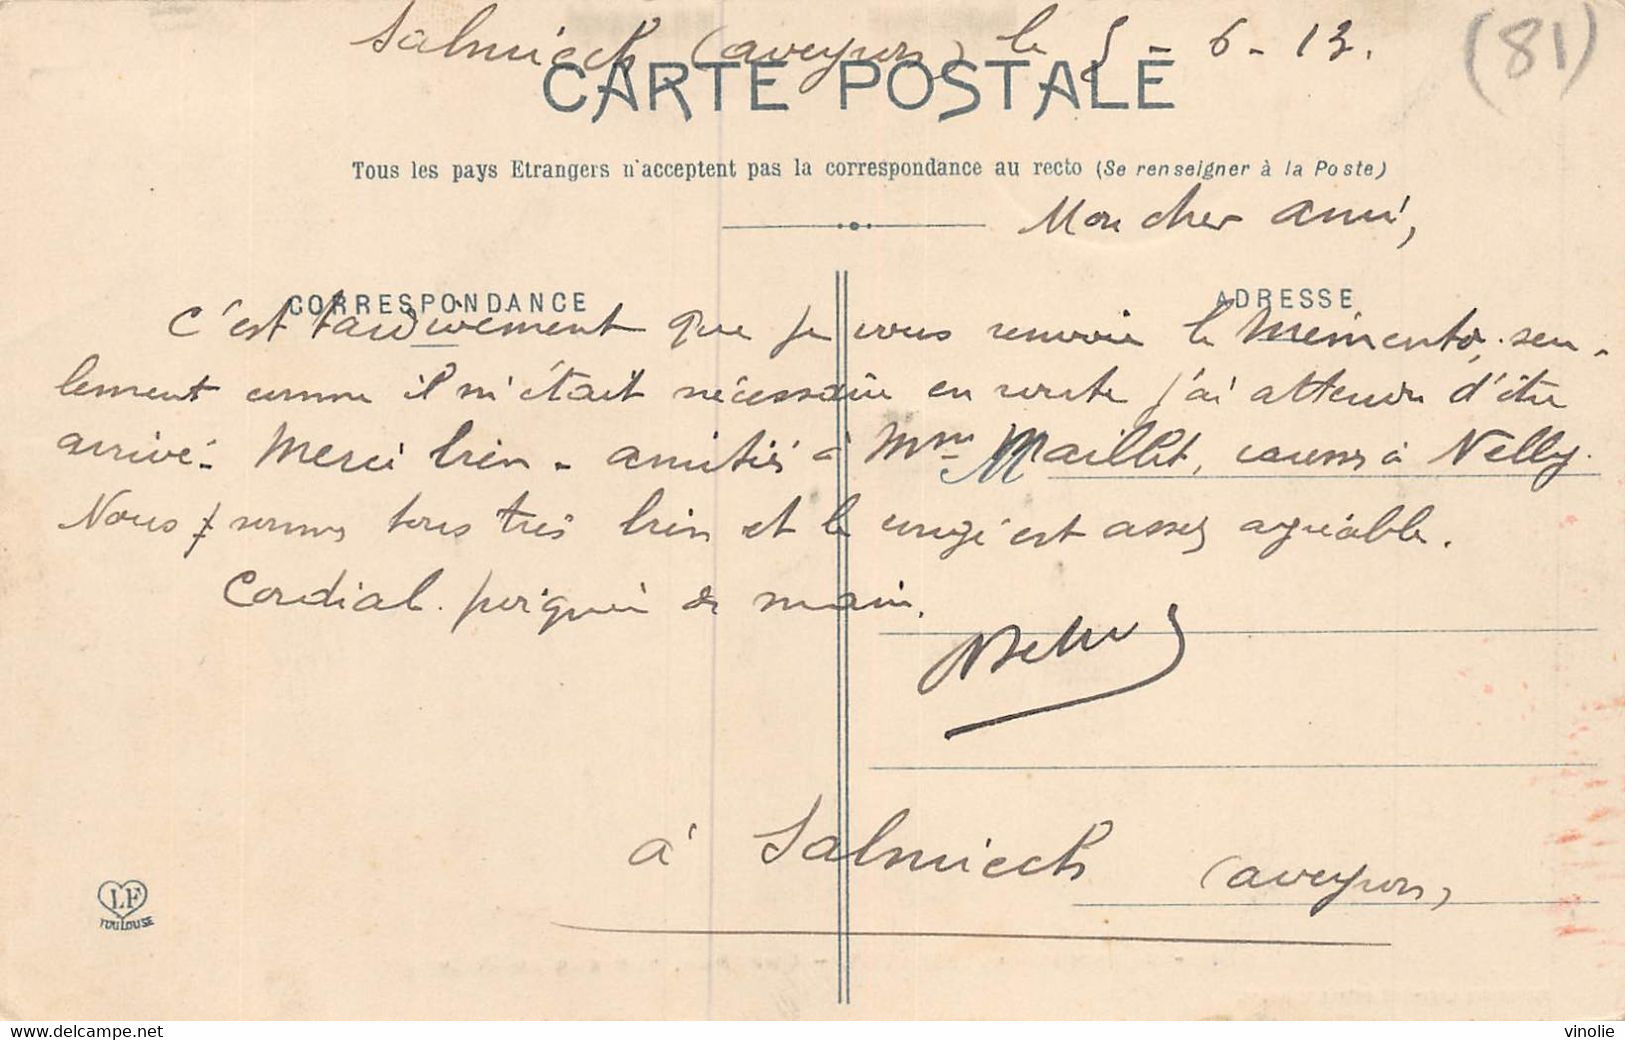 Salmiech (aveyron) le 5 - 6 - 13.
(81)
CARTE POSTALE
Tous les pays Etrangers n'acceptent pas la correspondance au recto (Se renseigner à la Poste)
Mon cher ami,
CORRESPONDANCE
ADRESSE
C'est tardivement que je vous renvoie le Mémento, seu-
lement comme il m'était nécessaire en route j'ai attendu d'être
arrivé. Merci bien - amitiés à Mme Maillet, à Nelly.
Nous sommes tous très bien et le congé est assez agréable.
Cordiale poignée de main.
à Salmiech (aveyron)
LF
TOULOUSE
www.delcampe.net
vinolie